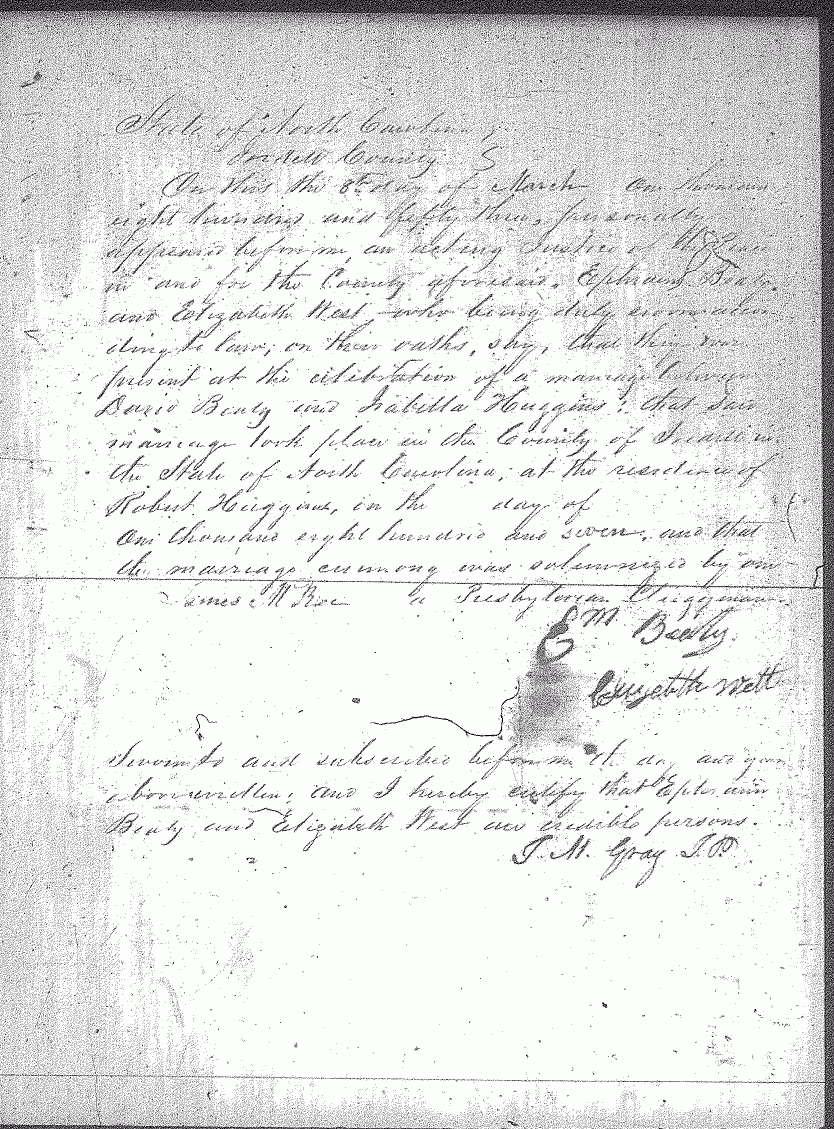 State of North Carolina }
Iredell County }
On this the 8th day of March One thousand
eight hundred and fifty three, personally
appeared before me, an acting Justice of the Peace
in and for the County aforesaid, Ephraim Beaty
and Elizabeth West who being duly sworn accor
ding to law, on their oaths, say, that they were
present at the celibration of a marriage between
David Beaty and Isabella Huggins; that said
marriage took place in the County of Iredell in
the State of North Carolina; at the residence of
Robert Huggins, in the day of
One thousand eight hundred and seven, and that
the marriage ceremony was solemnized by one
James a Presbyterian Clergyman.
E M Beaty.
Elizebeth West
Sworn to and subscribed before me the day and year
above written; and I hereby certify that Ephraim
Beaty and Elizabeth West are credible persons.
Gray J.P.